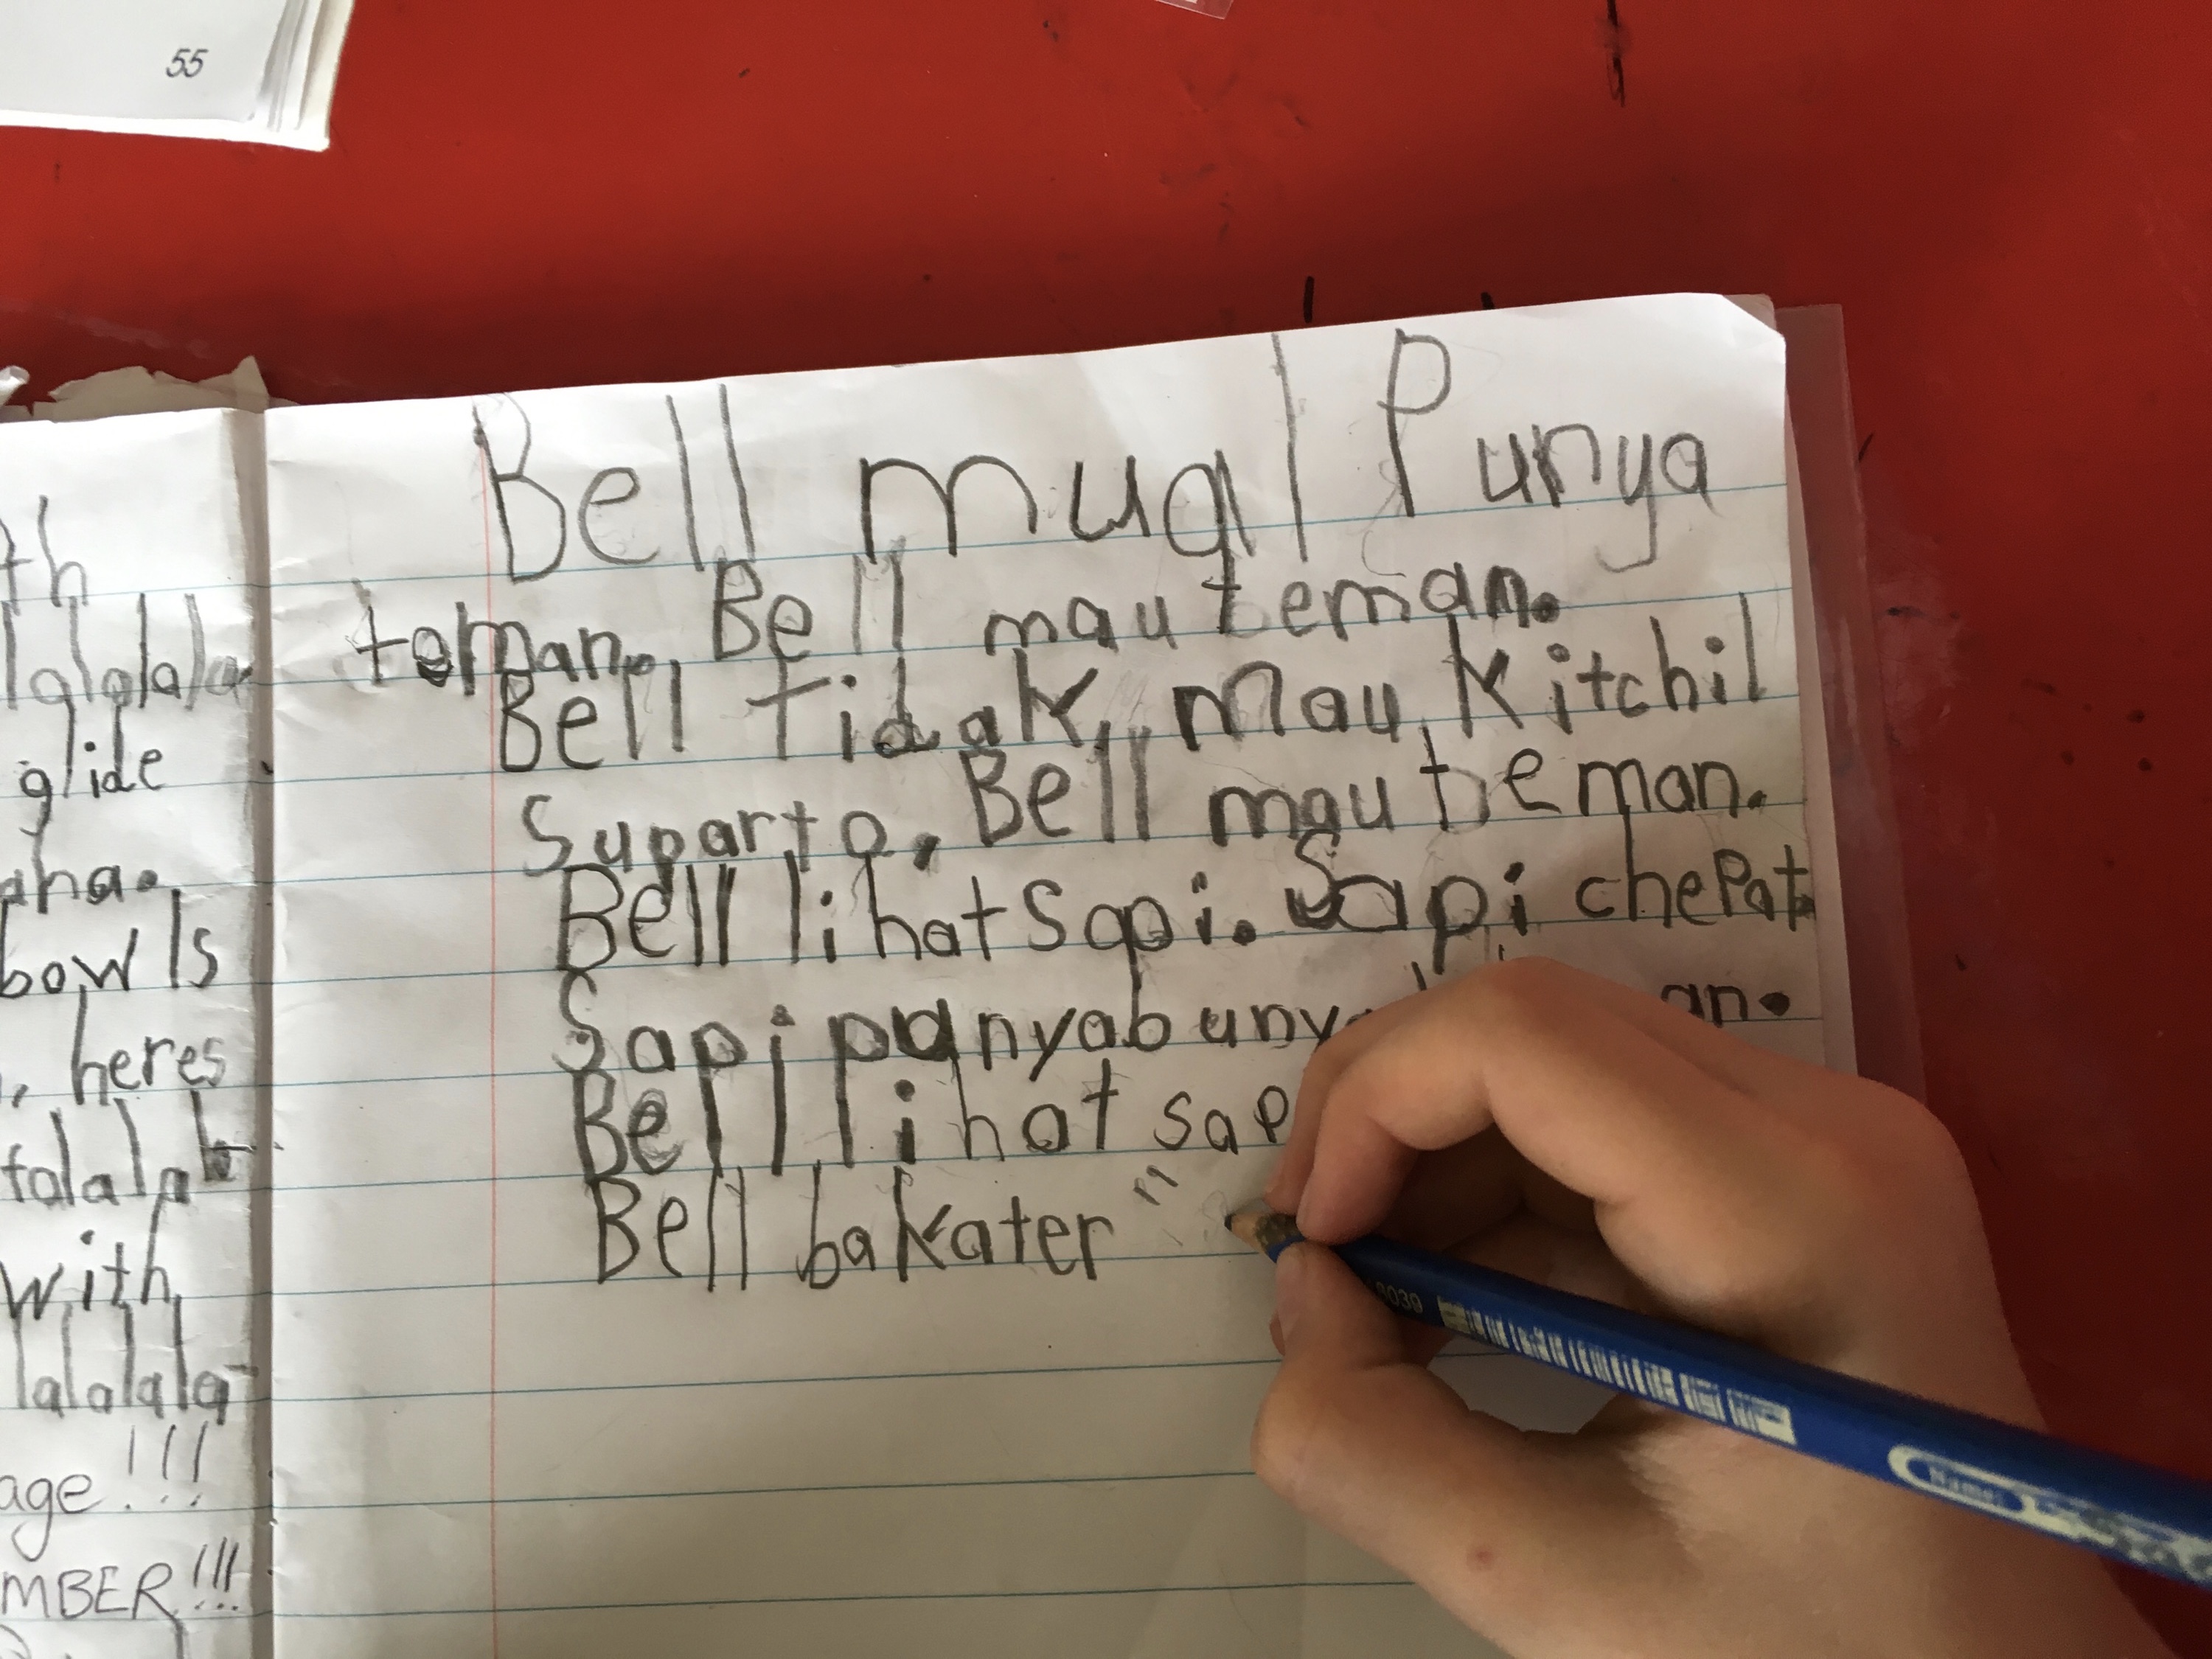 55
th
lalalala
glide
aha.
bowls
, heres
falala
with
lalalala
age!!!
MBER!!!
Bell mual Punya
teman. Bell mau teman.
Bell tidak mau kitchil
Suparto. Bell mau teman.
Bell lihat sapi. Sapi chePat
Sapi punyabunya an.
Bell lihat sap
Bell bakater "
8039
Name: